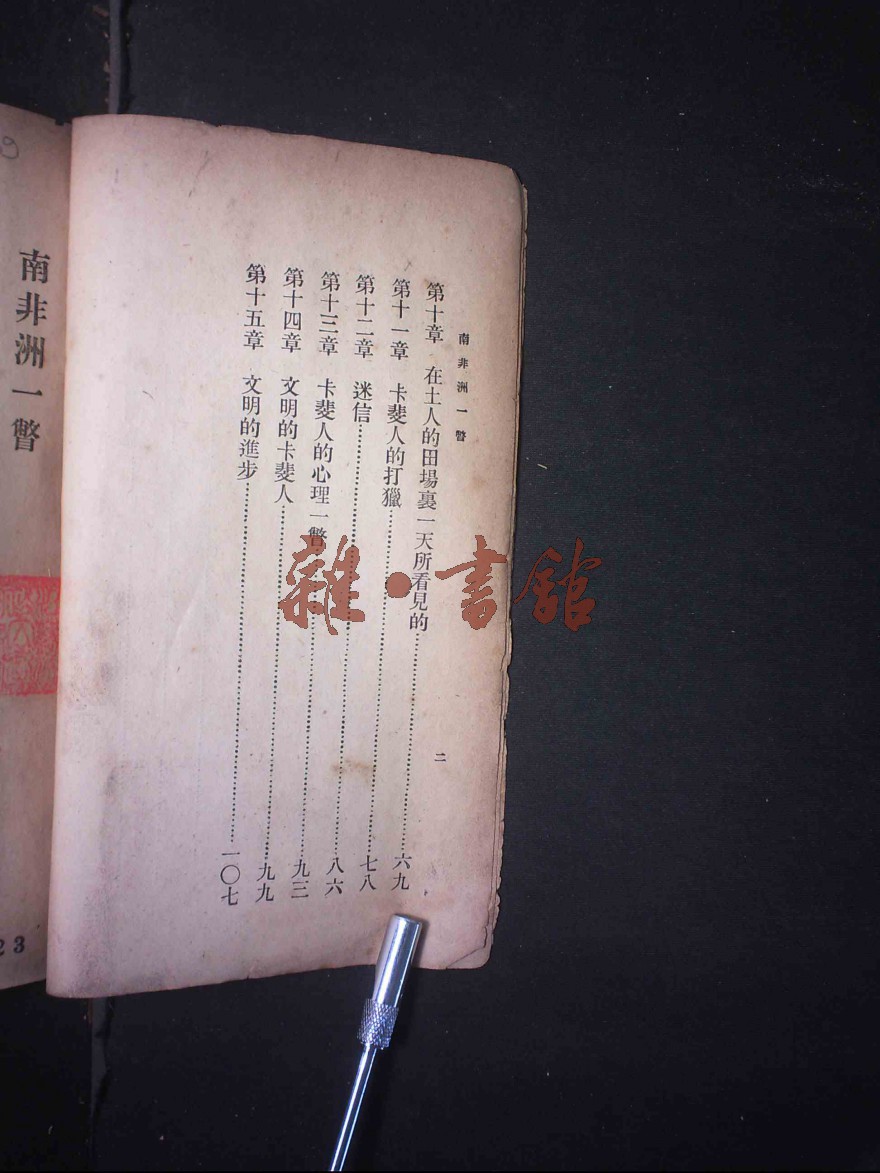 南非洲一瞥
二
第十章 在土人的田場裏一天所看見的……六九
第十一章 卡斐人的打獵……七八
第十二章 迷信……八六
第十三章 卡斐人的心理一瞥……九三
第十四章 文明的卡斐人……九九
第十五章 文明的進步……一〇七
南非洲一瞥
23
雜·書館